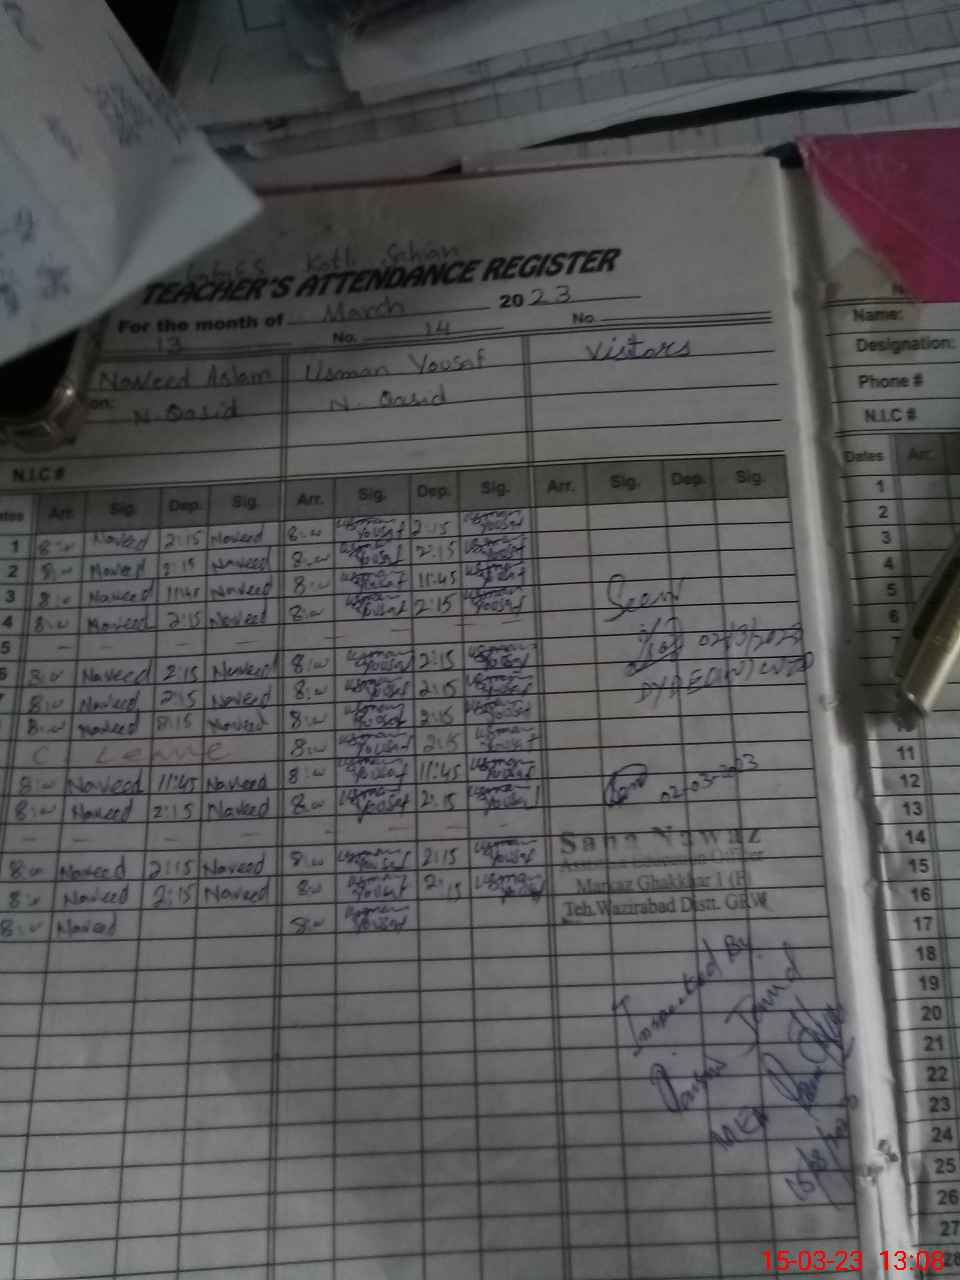 Kotli Sahian
TEACHER'S ATTENDANCE REGISTER
For the month of March 2023
13 No. 14 No.
Naveed Aslam Usman Yousaf Visitors
on: N. Qasid N. Qasid
N.I.C #
ates Arr. Sig. Dep. Sig. Arr. Sig. Dep. Sig. Arr. Sig. Dep. Sig.
1 8:00 Naveed 2:15 Naveed 8:00 Usman Yousaf 2:15 Usman Yousaf
2 8:00 Naveed 2:15 Naveed 8:00 Usman Yousaf 2:15 Usman Yousaf
3 8:00 Naveed 11:45 Naveed 8:00 Usman Yousaf 11:45 Usman Yousaf
4 8:00 Naveed 2:15 Naveed 8:00 Usman Yousaf 2:15 Usman Yousaf
5 – – – – – – – –
6 8:00 Naveed 2:15 Naveed 8:00 Usman Yousaf 2:15 Usman Yousaf
8:00 Naveed 2:15 Naveed 8:00 Usman Yousaf 2:15 Usman Yousaf
8:00 Naveed 2:15 Naveed 8:00 Usman Yousaf 2:15 Usman Yousaf
C Leave 8:00 Usman Yousaf 2:15 Usman Yousaf
8:00 Naveed 11:45 Naveed 8:00 Usman Yousaf 11:45 Usman Yousaf
8:00 Naveed 2:15 Naveed 8:00 Usman Yousaf 2:15 Usman Yousaf
– – – – – – – –
8:00 Naveed 2:15 Naveed 8:00 Usman Yousaf 2:15 Usman Yousaf
8:00 Naveed 2:15 Naveed 8:00 Usman Yousaf 2:15 Usman Yousaf
8:00 Naveed 8:00 Usman Yousaf
Seen
02/3/2023
DY DEO(W) WZD
02-03-2023
Sana Nawaz
Officer
Markaz Ghakkhar I (F)
Teh.Wazirabad Distt. GRW
Inspected By.
Javed
MEA
Name:
Designation:
Phone #
N.I.C #
Dates Arr.
1
2
3
4
5
6
7
11
12
13
14
15
16
17
18
19
20
21
22
23
24
25
26
27
28
15-03-23 13:08